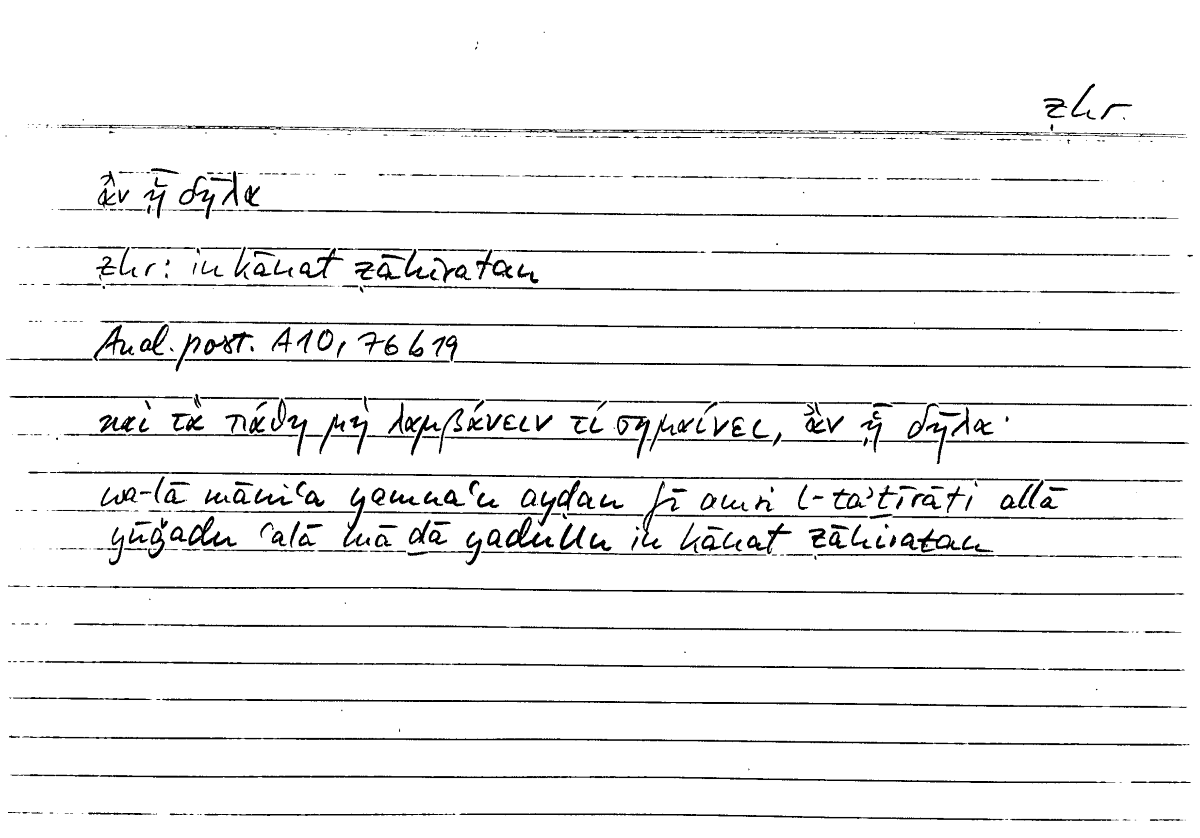 ẓhr.
ἂν ᾖ δῆλα
ẓhr: in kānat ẓāhiratan
Anal. post. A10, 76 b 19
καὶ τὰ πάθη μὴ λαμβάνειν τί σημαίνει, ἂν ᾖ δῆλα·
wa-lā māniʿa yamnaʿu ayḍan fī amri l-taʾṯīrāti allā
yūǧadu ʿalā mā ḏā yadullu in kānat ẓāhiratan